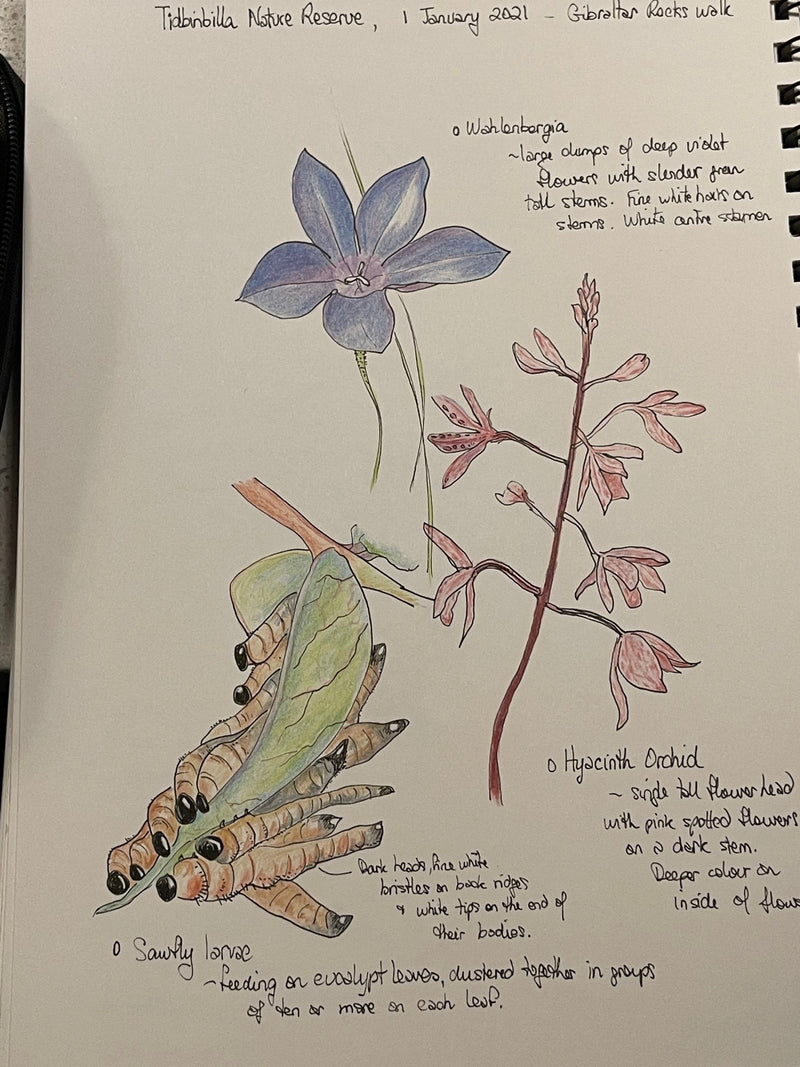 Tidbinbilla Nature Reserve, 1 January 2021 - Gibraltar Rocks walk
o Wahlenbergia
~ large clumps of deep violet
flowers with slender green
tall stems. Fine white hairs on
stems. White centre stamen
o Hyacinth Orchid
~ single tall flower head
with pink spotted flowers
on a dark stem.
Deeper colour on
inside of flow
Dark heads, fine white
bristles on back ridges
& white tips on the end of
their bodies.
o Sawfly larvae
~ feeding on eucalypt leaves, clustered together in groups
of ten or more on each leaf.